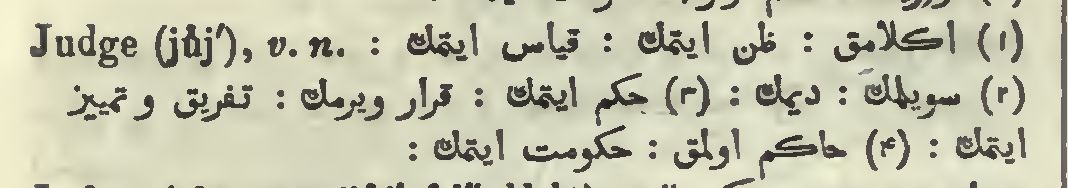 Judge (jŭj′), v. n. : (۱) اكلامق : ظن ايتمك : قياس ايتمك
(۲) سويلمك : ديمك : (۳) حكم ايتمك : قرار ويرمك : تفريق و تمييز
ايتمك : (۴) حاكم اولمق : حكومت ايتمك :